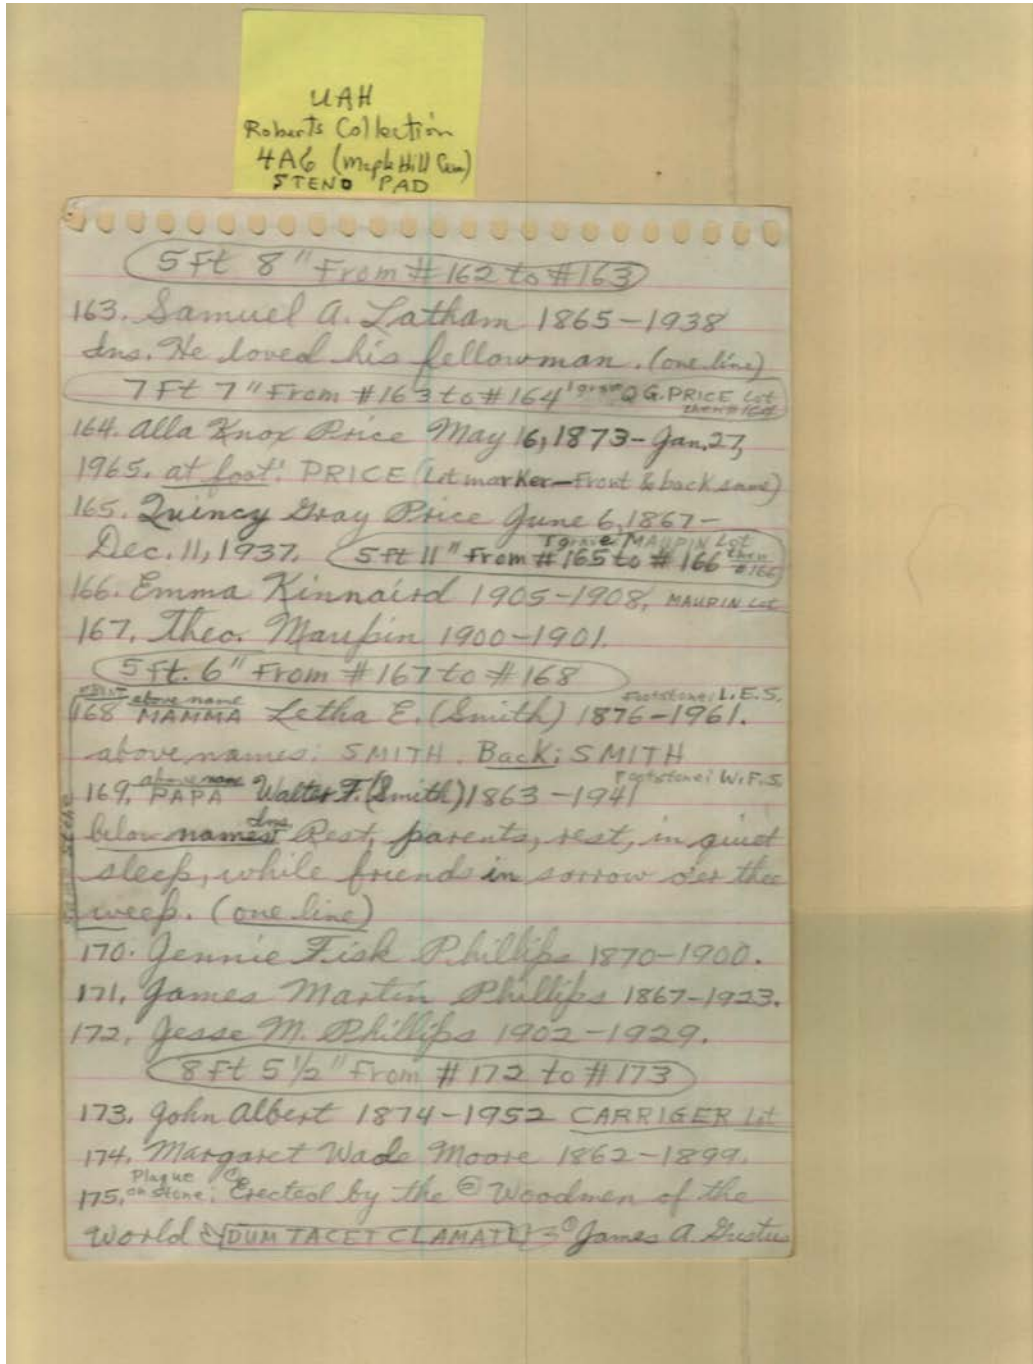 UAH
Roberts Collection
4A6 (Maple Hill Cem)
STENO PAD
5 Ft 8" From #162 to #163
163. Samuel A. Latham 1865-1938
Ins. He loved his fellowman. (one line)
7 Ft 7" From #163 to #164 1 grave Q G. PRICE Lot
then #164
164. Alla Knox Price May 16, 1873 - Jan. 27,
1965. at foot: PRICE (Lot marker - Front & back same)
165. Quincy Gray Price June 6, 1867 -
Dec. 11, 1937. 5 Ft 11" From #165 to #166 1 grave MAUPIN Lot then #166
166. Emma Kinnaird 1905-1908. MAUPIN Lot
167. Theo. Maupin 1900-1901.
5 Ft. 6" From #167 to #168
above name footstone: L.E.S.
168 MAMMA Letha E. (Smith) 1876-1961.
above names: SMITH. Back: SMITH
above name Footstone: W.F.S.
169. PAPA Walter F. (Smith) 1863-1941
same stone
below names Ins. Rest, parents, rest, in quiet
sleep, while friends in sorrow o'er thee
weep. (one line)
170. Jennie Fisk Phillips 1870-1900.
171. James Martin Phillips 1867-1923.
172. Jesse M. Phillips 1902-1929.
8 Ft 5 1/2" From #172 to #173
173. John Albert 1874-1952 CARRIGER Lot
174. Margaret Wade Moore 1862-1899.
Plaque
175. on stone: Erected by the Woodmen of the
World DUM TACET CLAMAT James A.